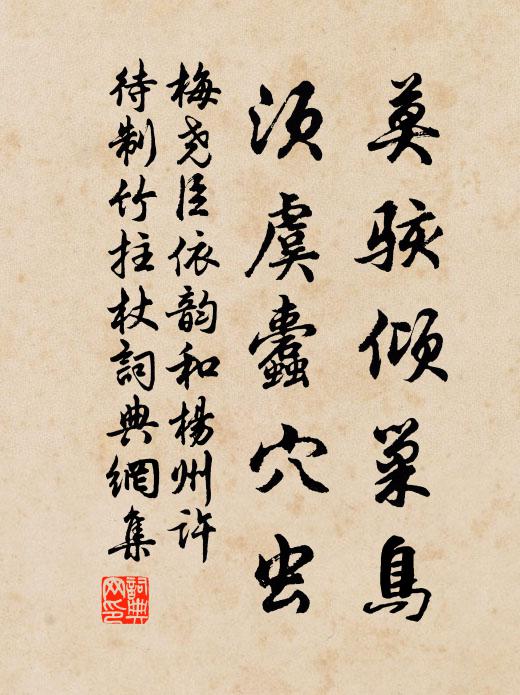 莫駭倾巢鳥
须虞蠹穴虫
梅尧臣依韵和楊州许
待制竹拄杖詞典網集
詞典网印